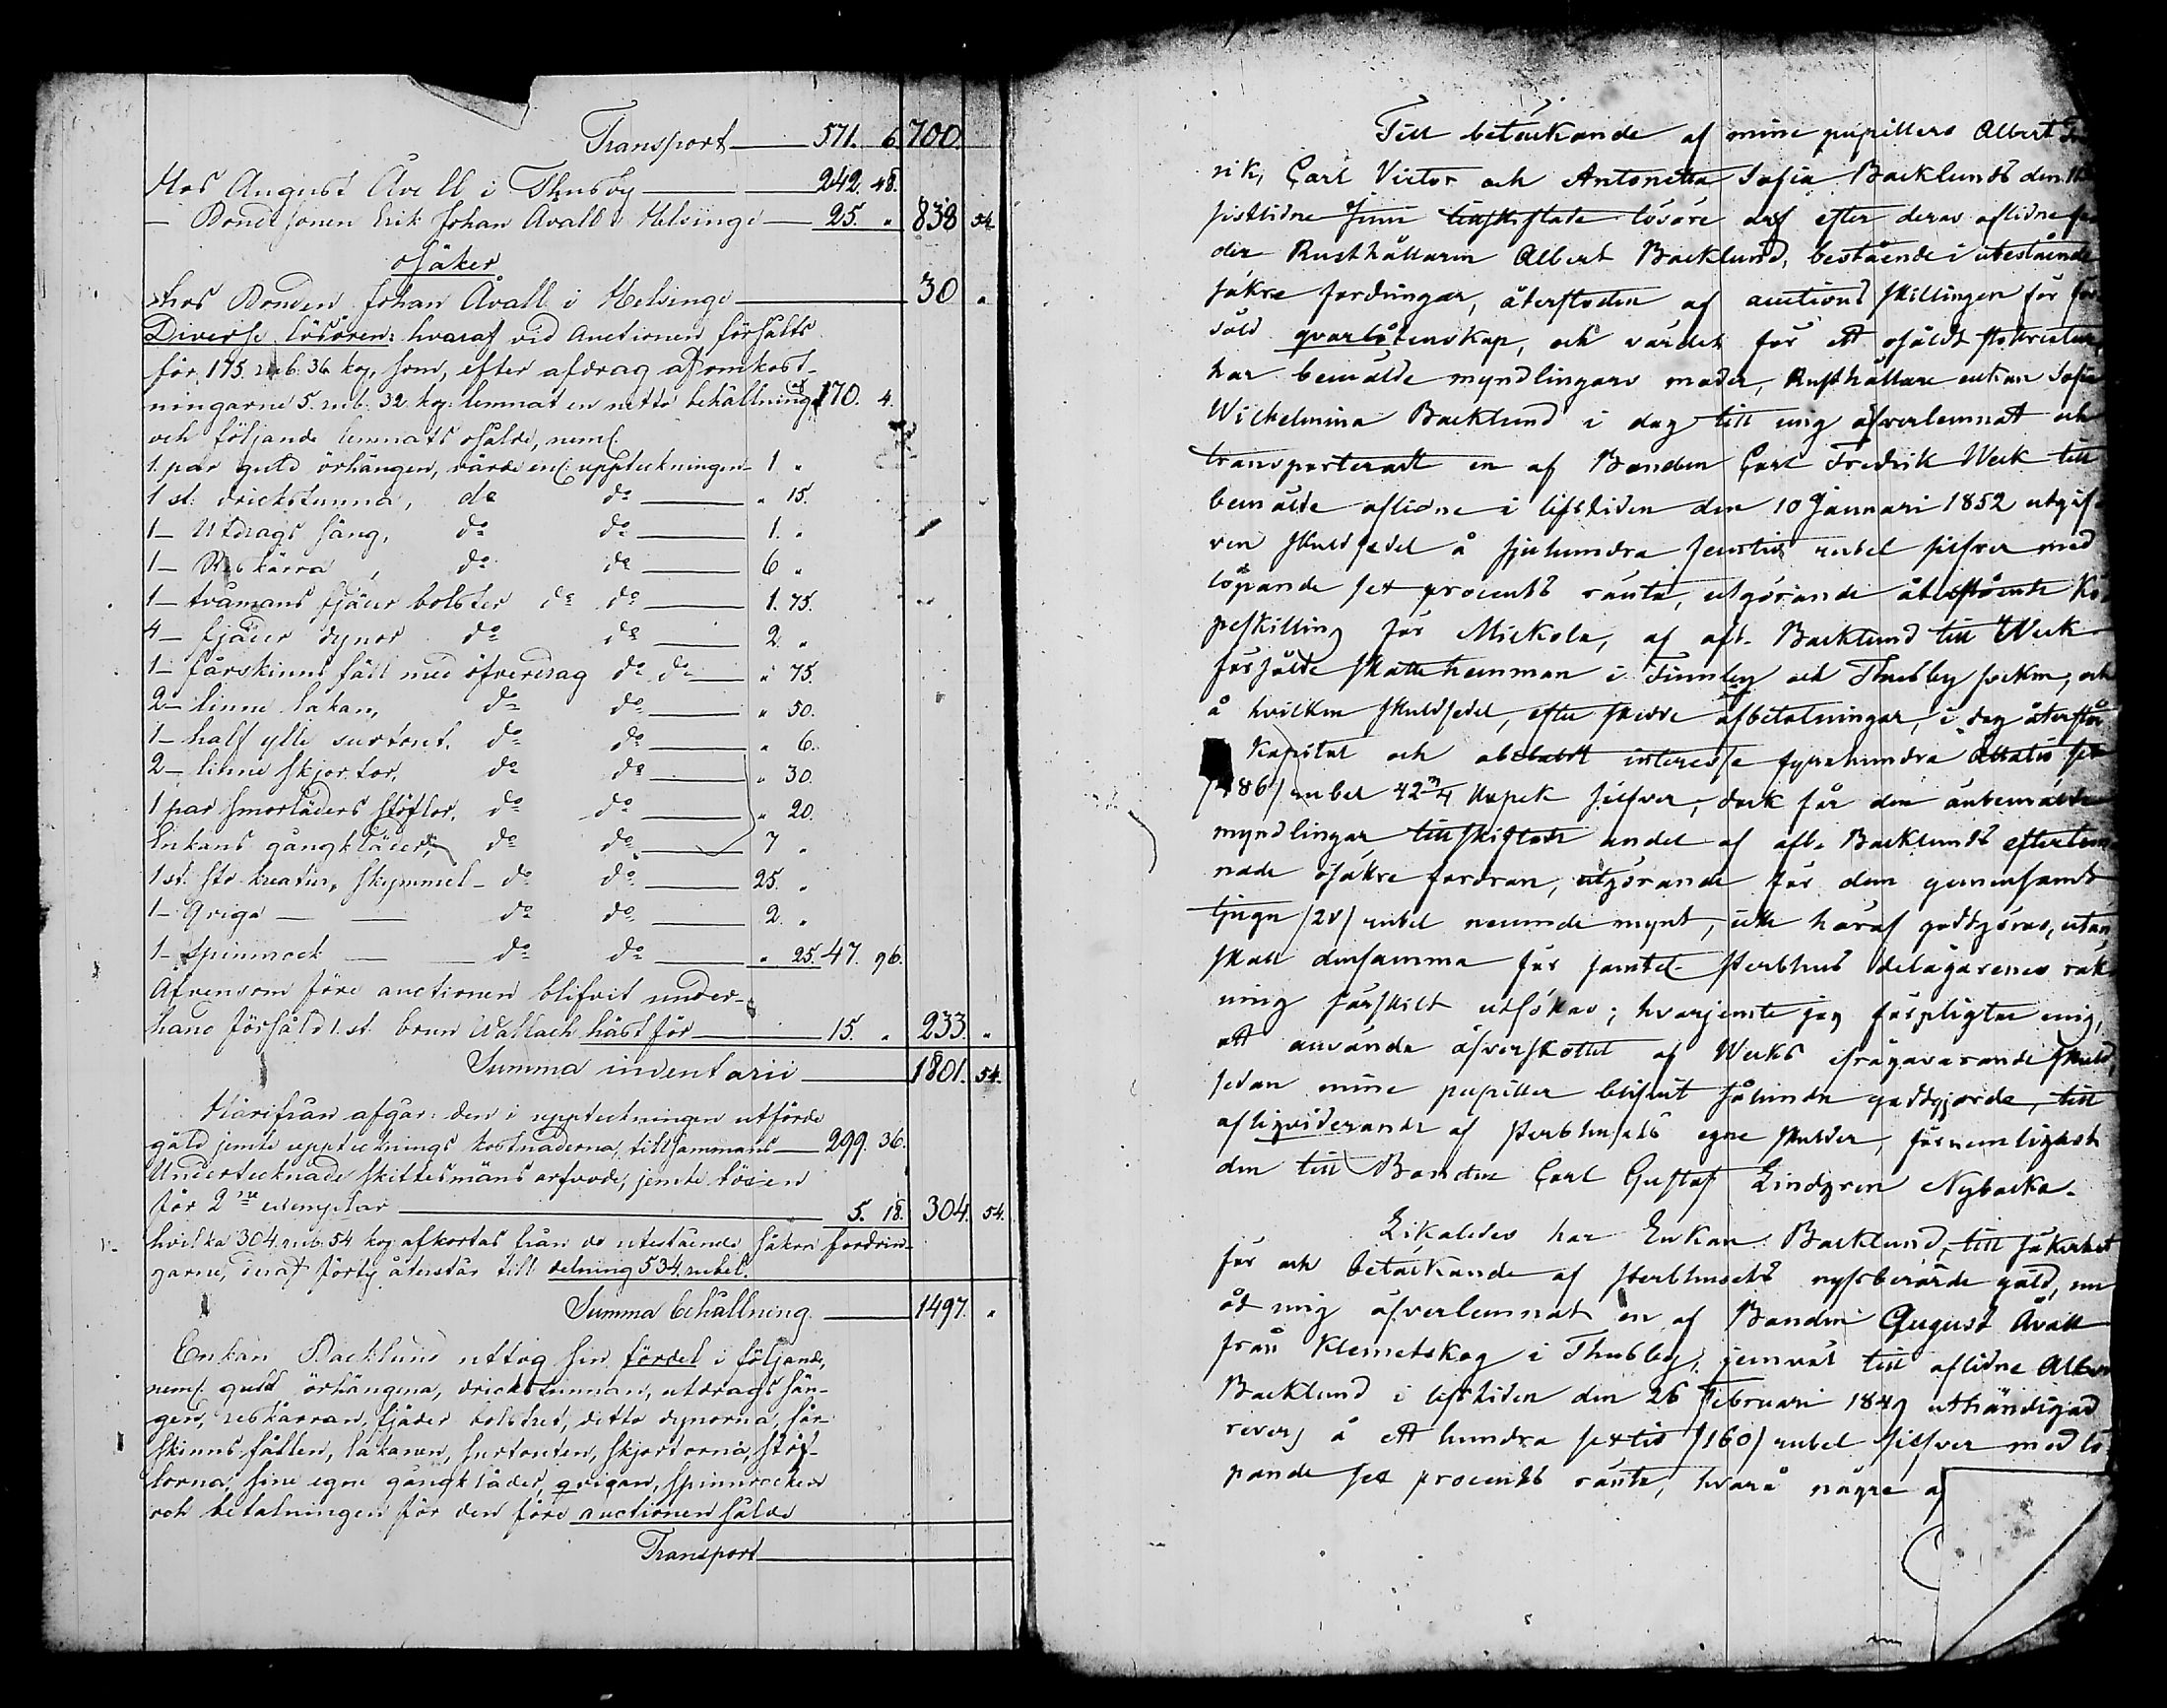 Transport — 571. 6. 700.
Hos August Åvall i Thusby — 242. 48.
— Bondesonen Erik Johan Avall i Helsinge — 25. „ 838 54.
osäker
hos Bonden Johan Åvall i Helsinge — 30 „
Diverse lösören: hvaraf vid Auctionen försålts
för 175. rub. 36 kop, som, efter afdrag af omkost-
ningarne 5. rub. 32 kop. lemnat en netto behållning af 170. 4.
och följande lemnats osålde, neml.
1. par guld örhängen, värde enl. uppteckningen 1 „
1 st. drickstunna, do do — „ 15.
1 — Utdrags säng, do do — 1. „
1 — Reskärra, do do — 6 „
1 — tvåmans fjäder bolster do do — 1. 75.
4 — fjäder dynor do do — 2. „
1 — fårskinns fäll med öfverdrag do do — „ 75.
2 — linne lakan, do do — „ 50.
1 — half ylle surtout, do do — „ 6.
2 — linne skjortor, do do — „ 30.
1 par smorläders stöflor, do do — „ 20.
Enkans gångkläder, do do — 7 „
1 st. sto kreatur, skymmel — do do — 25. „
1 — Qviga — do do — 2. „
1 — Spinnrock — do do — „ 25. 47. 96.
Äfvensom före auctionen blifvit under-
hand försåld 1. st. brun Wallach häst för — 15. „ 233. „
Summa inventarii — 1801. 54.
Härifrån afgår: den i uppteckningen utförde
gäld jemte upptecknings kostnaderna, tillsammans — 299. 36.
Undertecknade skiftesmäns arfvode, jemte lösen
för 2ne exemplar — 5. 18. 304. 54.
hvilka 304. rub. 54 kop afkortas från de utestående säkra fordrin-
garne, deraf förty återstår till delning 534. rubel.
Summa behållning. — 1497. „
Enkan Backlund uttog sin fördel i följande,
neml. guld örhängena, drickstunnan, utdrags sän-
gen, reskärran, fjäder bolstret, ditto dynorna, får-
skinns fällen, lakanen, surtouten, skjortorna, stöf-
lorna, sine egne gångkläder, qvigan, spinnrocken
och betalningen för den före auctionen sålde
Transport —
Till betäckande af mine pupillers Albert
rik, Carl Victor och Antonetta Sofia Backlunds den
sistlidne Junii tillskiftade lösöre arf efter deras aflidne
der Rusthållaren Albert Backlund, bestående i utestående
säkre fordringar, återstoden af auctions skillingen för för
såld qvarlåtenskap, och värdet för ett osåldt stokreatur,
har bemälde myndlingars moder, Rusthållare enkan Sofia
Wilhelmina Backlund i dag till mig öfverlemnat och
transporterat en af Bonden Carl Fredrik Weck till
bemälde aflidne i lifstiden den 10 Januari 1852 utgif-
ven skuldsedel å sjuhundra femtio rubel silfver med
löpande sex procents ränta, utgörande återstående Kö-
peskilling för Mickola, af afl. Backlund till Weck
försålde skattehemman i Finnby och Thusby socken, och
å hvilken skuldsedel, efter skedde afbetalningar, i dag återstår
Kapital och obetalt interesse fyrahundra åttatio sex
/486/ rubel 42 3/4 kopek silfver, dock får den ånbemälde
myndlingar tillskiftade andel af afl. Backlunds efterlem-
nade osäkre fordran, utgörande för dem gemensamt
tjugu /20/ rubel nemnde mynt, icke häraf godtgöras, utan
skall densamma för samtel. sterbhus delägarenes räk-
ning särskilt utsökas; hvarjemte jag förpligtar mig,
att använda öfverskottet af Wecks ifrågavarande skuld,
sedan mine pupiller blifvit sålunda godtgjorde, till
afliqviderande af sterbhusets egne skulder, förnemligast
den till Bonden Carl Gustaf Lindgren Nybacka.
Likaledes har Enkan Backlund, till säkerhet
för och betäckande af sterbhusets nyssberörde gäld, nu
åt mig öfverlemnat en af Bonden August Åvall
från Klemetskog i Thusby, jemväl till aflidne Albert
Backlund i lifstiden den 26 Februari 1849 uthändigad
revers å ett hundra sextio /160/ rubel silfver med lö-
pande sex procents ränta, hvarå några